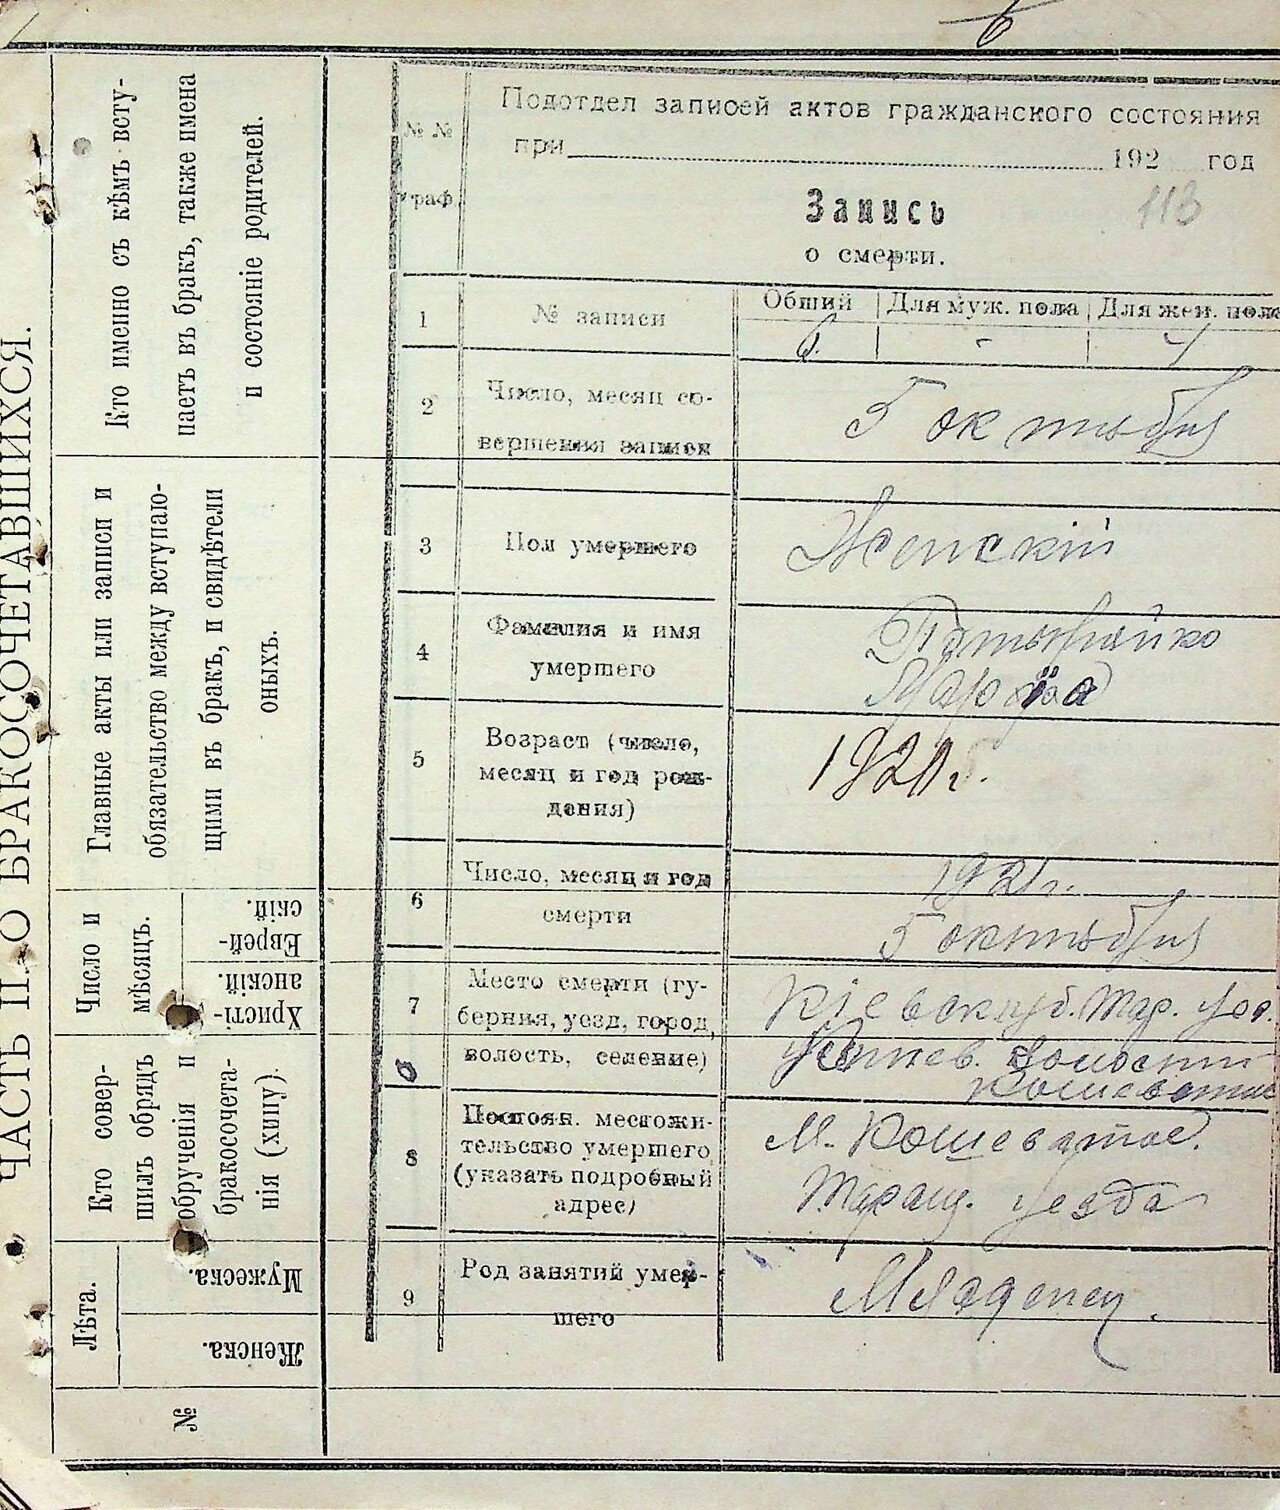 6
ЧАСТЬ II. О БРАКОСОЧЕТАВШИХСЯ.
Кто именно съ кѣмъ всту-
паетъ въ брак, также имена
и состояніе родителей.
Главные акты или записи и
обязательство между вступаю-
щими въ бракъ, и свидѣтели
оныхъ.
Число и
мѣсяцъ.
Еврей-
скій.
Христі-
анскій.
Кто совер-
шилъ обрядъ
обрученія и
бракосочета-
нія (хипу).
Лѣта.
Мужеска.
Женска.
№
№ №
граф.
Подотдел записей актов гражданского состояния
при 192 год
Запись
113
о смерти.
1
№ записи
Общий
Для муж. пола
Для жен. пола
6.
-
2
Число, месяц со-
вершения записи
5 октября
3
Пол умершего
Женскій
4
Фамилия и имя
умершего
Марія
5
Возраст (число,
месяц и год рож-
дения)
6
Число, месяц и год
смерти
1921 г.
5 октября
7
Место смерти (гу-
берния, уезд, город,
волость, селение)
Кіевск губ. Тар. уез.
волости
8
Постоян. местожи-
тельство умершего
(указать подробный
адрес)
М. Кошеватое.
Таращ. уезда
9
Род занятий умер-
шего
Младенец.